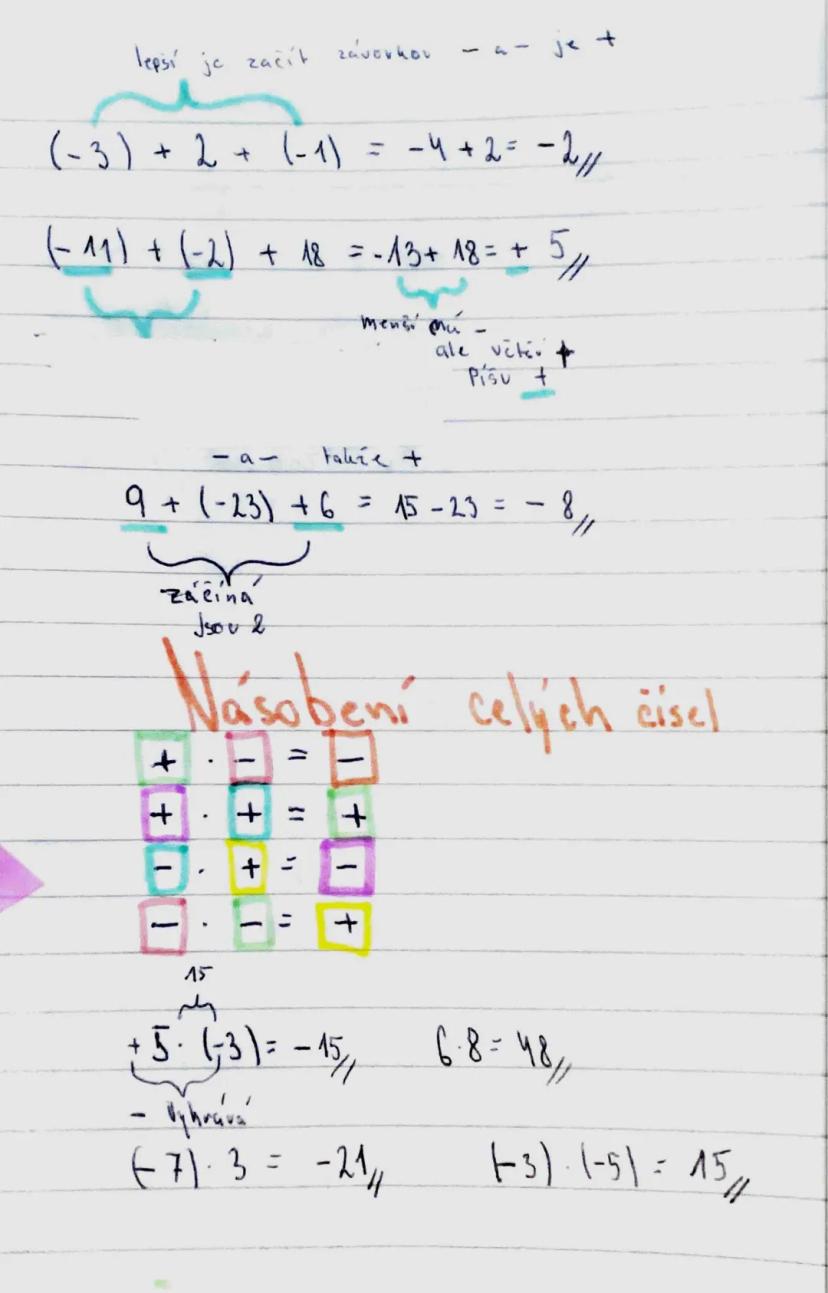 lepší je začít závorkou - a - je +
(-3) + 2 + (-1) = -4 + 2 = -2
(-11) + (-2) + 18 = -13 + 18 = + 5
menší má -
ale větší +
Píšu +
- a - takže +
9 + (-23) + 6 = 15 - 23 = - 8
záčíná
Jsou 2
Násobení celých čísel
+ · - = -
+ · + = +
- · + = -
- · - = +
15
+ 5 · (-3) = - 15 6 · 8 = 48
- Vyhrává
(-7) · 3 = -21 (-3) · (-5) = 15